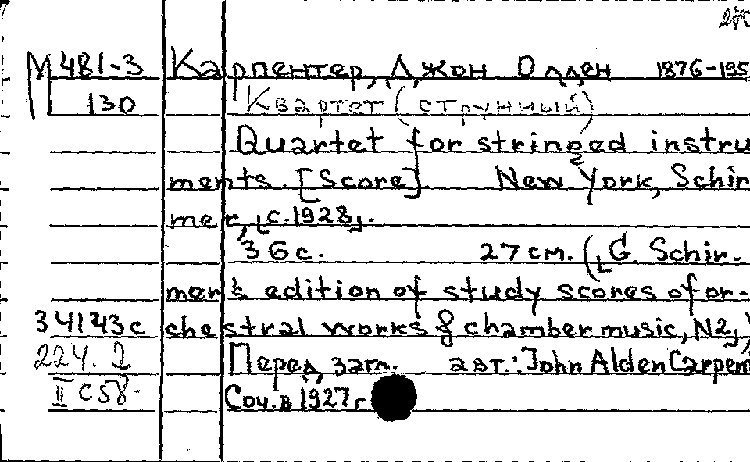 М 481-3 Карпентер, Джон Олден 1876-195
130 Квартет (струнный)
Quartet for stringed instru
ments. [Score] New York, Schir
mer, [c. 1928].
36 с. 27 см. ([G. Schir-
mer's edition of study scores of or-
34143с chestral works & chamber music, N2])
224. Перед загл. авт.: John Alden Carpen
II С58 Соч. в 1927 г